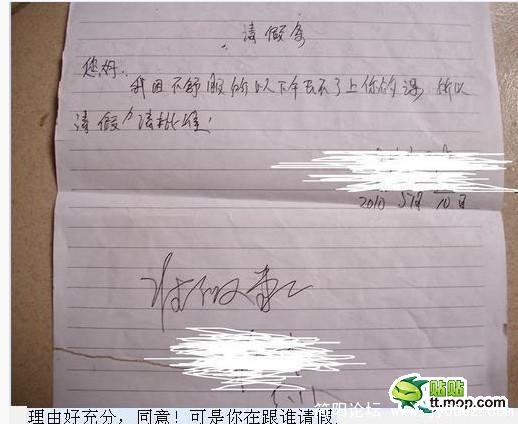 请假条
您好.
我因不舒服所以下午去不了上你的课 所以
请假，请批准！
2010 5月 10日
准假
贴贴
tt.mop.com
简阳论坛
理由好充分，同意！可是你在跟谁请假